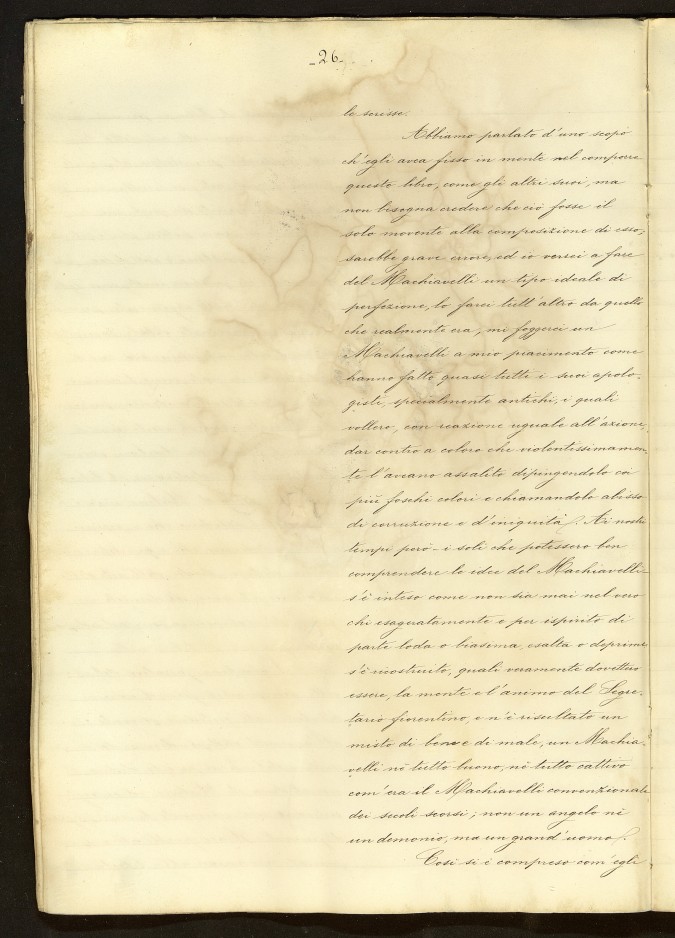 - 26 -
le scresse.
Abbiamo parlato d'uno scopo
ch'egli avea fisso in mente nel comporre
questo libro, come gli altri suoi, ma
non bisogna credere che ciò fosse il
solo movente alla composizione di esso;
sarebbe grave errore, ed io verrei a fare
del Machiavelli un tipo ideale di
perfezione, lo farei tutt'altro da quello
che realmente era, mi foggerei un
Machiavelli a mio piacimento come
hanno fatto quasi tutti i suoi apolo-
gisti, specialmente antichi, i quali
vollero, con reazione uguale all'azione,
dar contro a coloro che violentissimamen-
te l'aveano assalito dipingendolo coi
più foschi colori e chiamandolo abisso
di corruzione e d'iniquità. Ai nostri
tempi però - i soli che potessero ben
comprendere le idee del Machiavelli -
s'è inteso come non sia mai nel vero
chi esageratamente e per ispirito di
parte loda o biasima, esalta o deprime
s'è ricostruito, quali veramente dovettero
essere, la mente e l'animo del Segre-
tario fiorentino, e n'è risultato un
misto di bene e di male, un Machia-
velli nè tutto buono, nè tutto cattivo
com'era il Machiavelli convenzionale
dei secoli scorsi; non un angelo nè
un demonio, ma un grand'uomo.
Così si è compreso com'egli